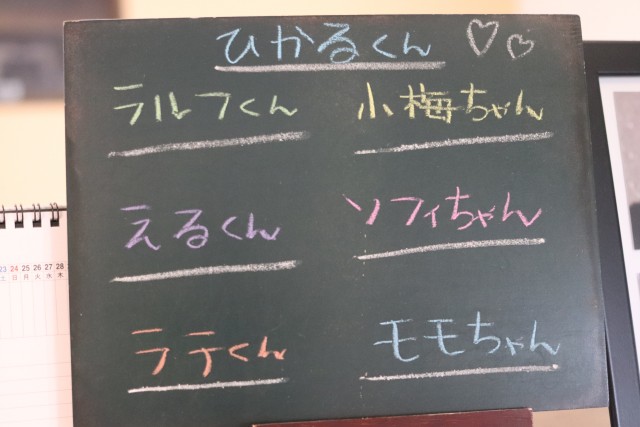 ひかるくん
ラルフくん 小梅ちゃん
えるくん ソフィちゃん
ラテくん モモちゃん
23 24 25 26 27 28
土 日 月 火 水 木